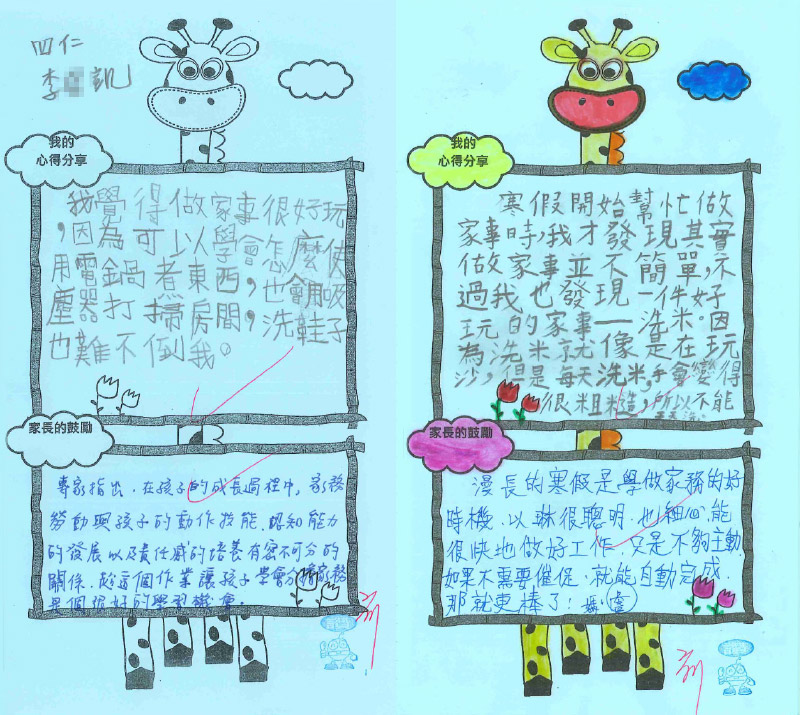 四仁
李 凱
我的
心得分享
我覺得做家事很好玩
，因為可以學會怎麼使
用電鍋煮東西，也會用吸
塵器打掃房間，洗鞋子
也難不倒我。
家長的鼓勵
專家指出，在孩子的成長過程中，家務
勞動與孩子的動作技能、認知能力
的發展以及責任感的培養有密不可分的
關係，故這個作業讓孩子學會分擔家務
是個很好的學習機會。
我的
心得分享
寒假開始幫忙做
家事時，我才發現其實
做家事並不簡單，不
過我也發現一件好
玩的家事——洗米。因
為洗米就像是在玩
沙，但是每天洗米，手會變得
很粗糙，所以不能
家長的鼓勵
漫長的寒假是學做家務的好
時機，以琳很聰明，也細心，能
很快地做好工作，只是不夠主動，
如果不需要催促，就能自動完成，
那就更棒了！